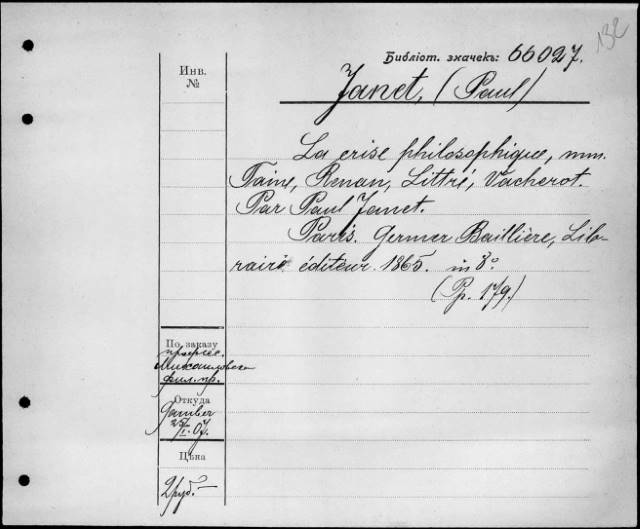 132
Библіот. значекъ: 66027.
Инв.
№
Janet, (Paul)
La crise philosophique, mm.
Taine, Renan, Littré, Vacherot.
Par Paul Janet.
Paris. Germer Baillière, Lib-
raire éditeur. 1865. in 8º
(Pp. 179.)
По заказу
професс.
Михайловска
фил. пр.
Откуда
Gamber
25/I 07.
Цѣна
2 руб. –